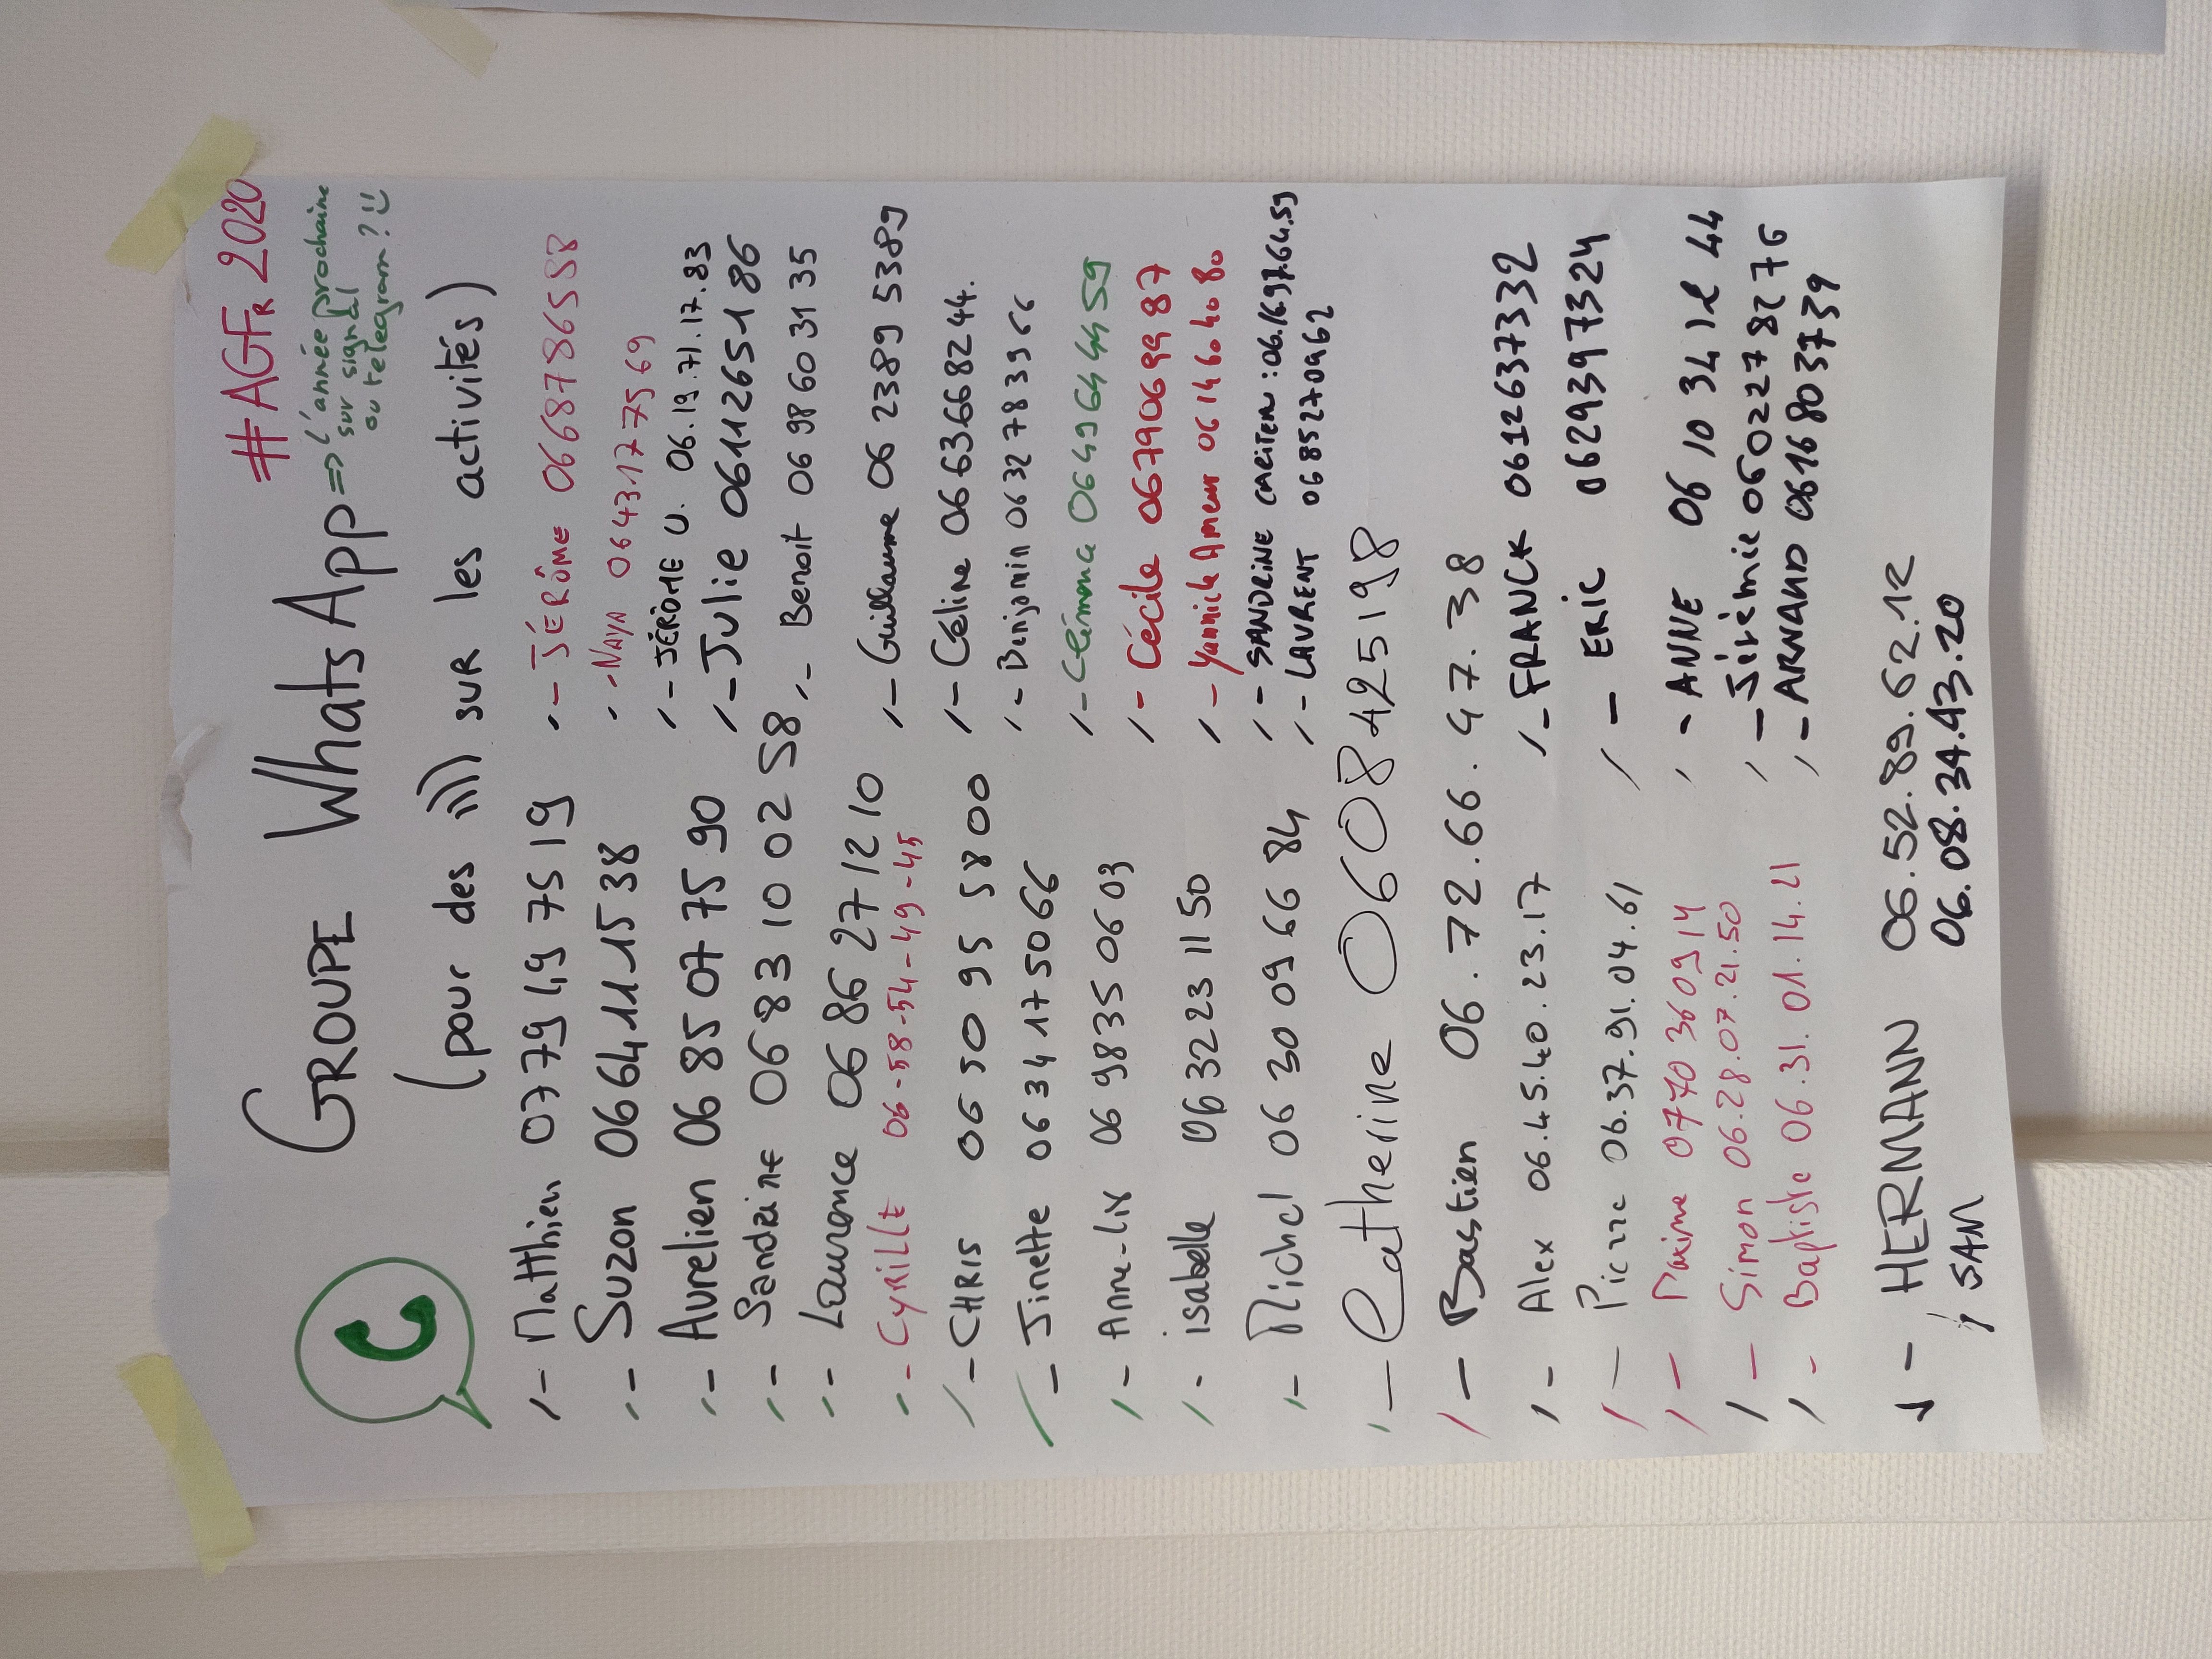 #AGFR 2020
GROUPE WhatsApp
⇒ l'année prochaine
sur signal
ou telegram ? :)
(pour des ))) SUR les activités)
- Matthieu 07 79 49 75 19
- Suzon 06 64 11 15 38
- Aurelien 06 85 07 75 90
- Sandrine 06 83 10 02 58
- Laurence 06 86 27 12 10
- CYRILLE 06-58-54-49-45
- CHRIS 06 50 95 58 00
- Jinette 06 34 17 50 66
- Anne-Lis 06 98 35 06 03
- isabelle 06 32 23 11 50
- Michel 06 30 09 66 84
- Catherine 0608425198
- Bastien 06.72.66.47.38
- Alex 06.45.40.23.17
- Pierre 06.37.91.04.61
- Maxime 0770 36 09 14
- Simon 06.28.07.21.50
- Baptiste 06.31.01.14.21
- HERMANN 06.52.89.62.12
SAM 06.08.34.43.20
- JÉRÔME 0668786588
- NAYA 0643177569
- JÉRÔME U. 06.19.71.17.83
- Julie 0611265186
- Benoit 06 98 60 31 35
- Guillaume 06 2389 5389
- Céline 06 63668244.
- Benjamin 06 32 78 39 66
- Clémence 0649644459
- Cécile 0679069987
- Yannick Ameur 06 14 60 40 80
- SANDRINE CARITEAU : 06.16.97.64.59
- LAURENT 0685270962
- FRANCK 0612637332
- ERIC 0629397324
- ANNE 06 10 34 12 44
- Jérémie 0602278276
- ARNAUD 0616803739